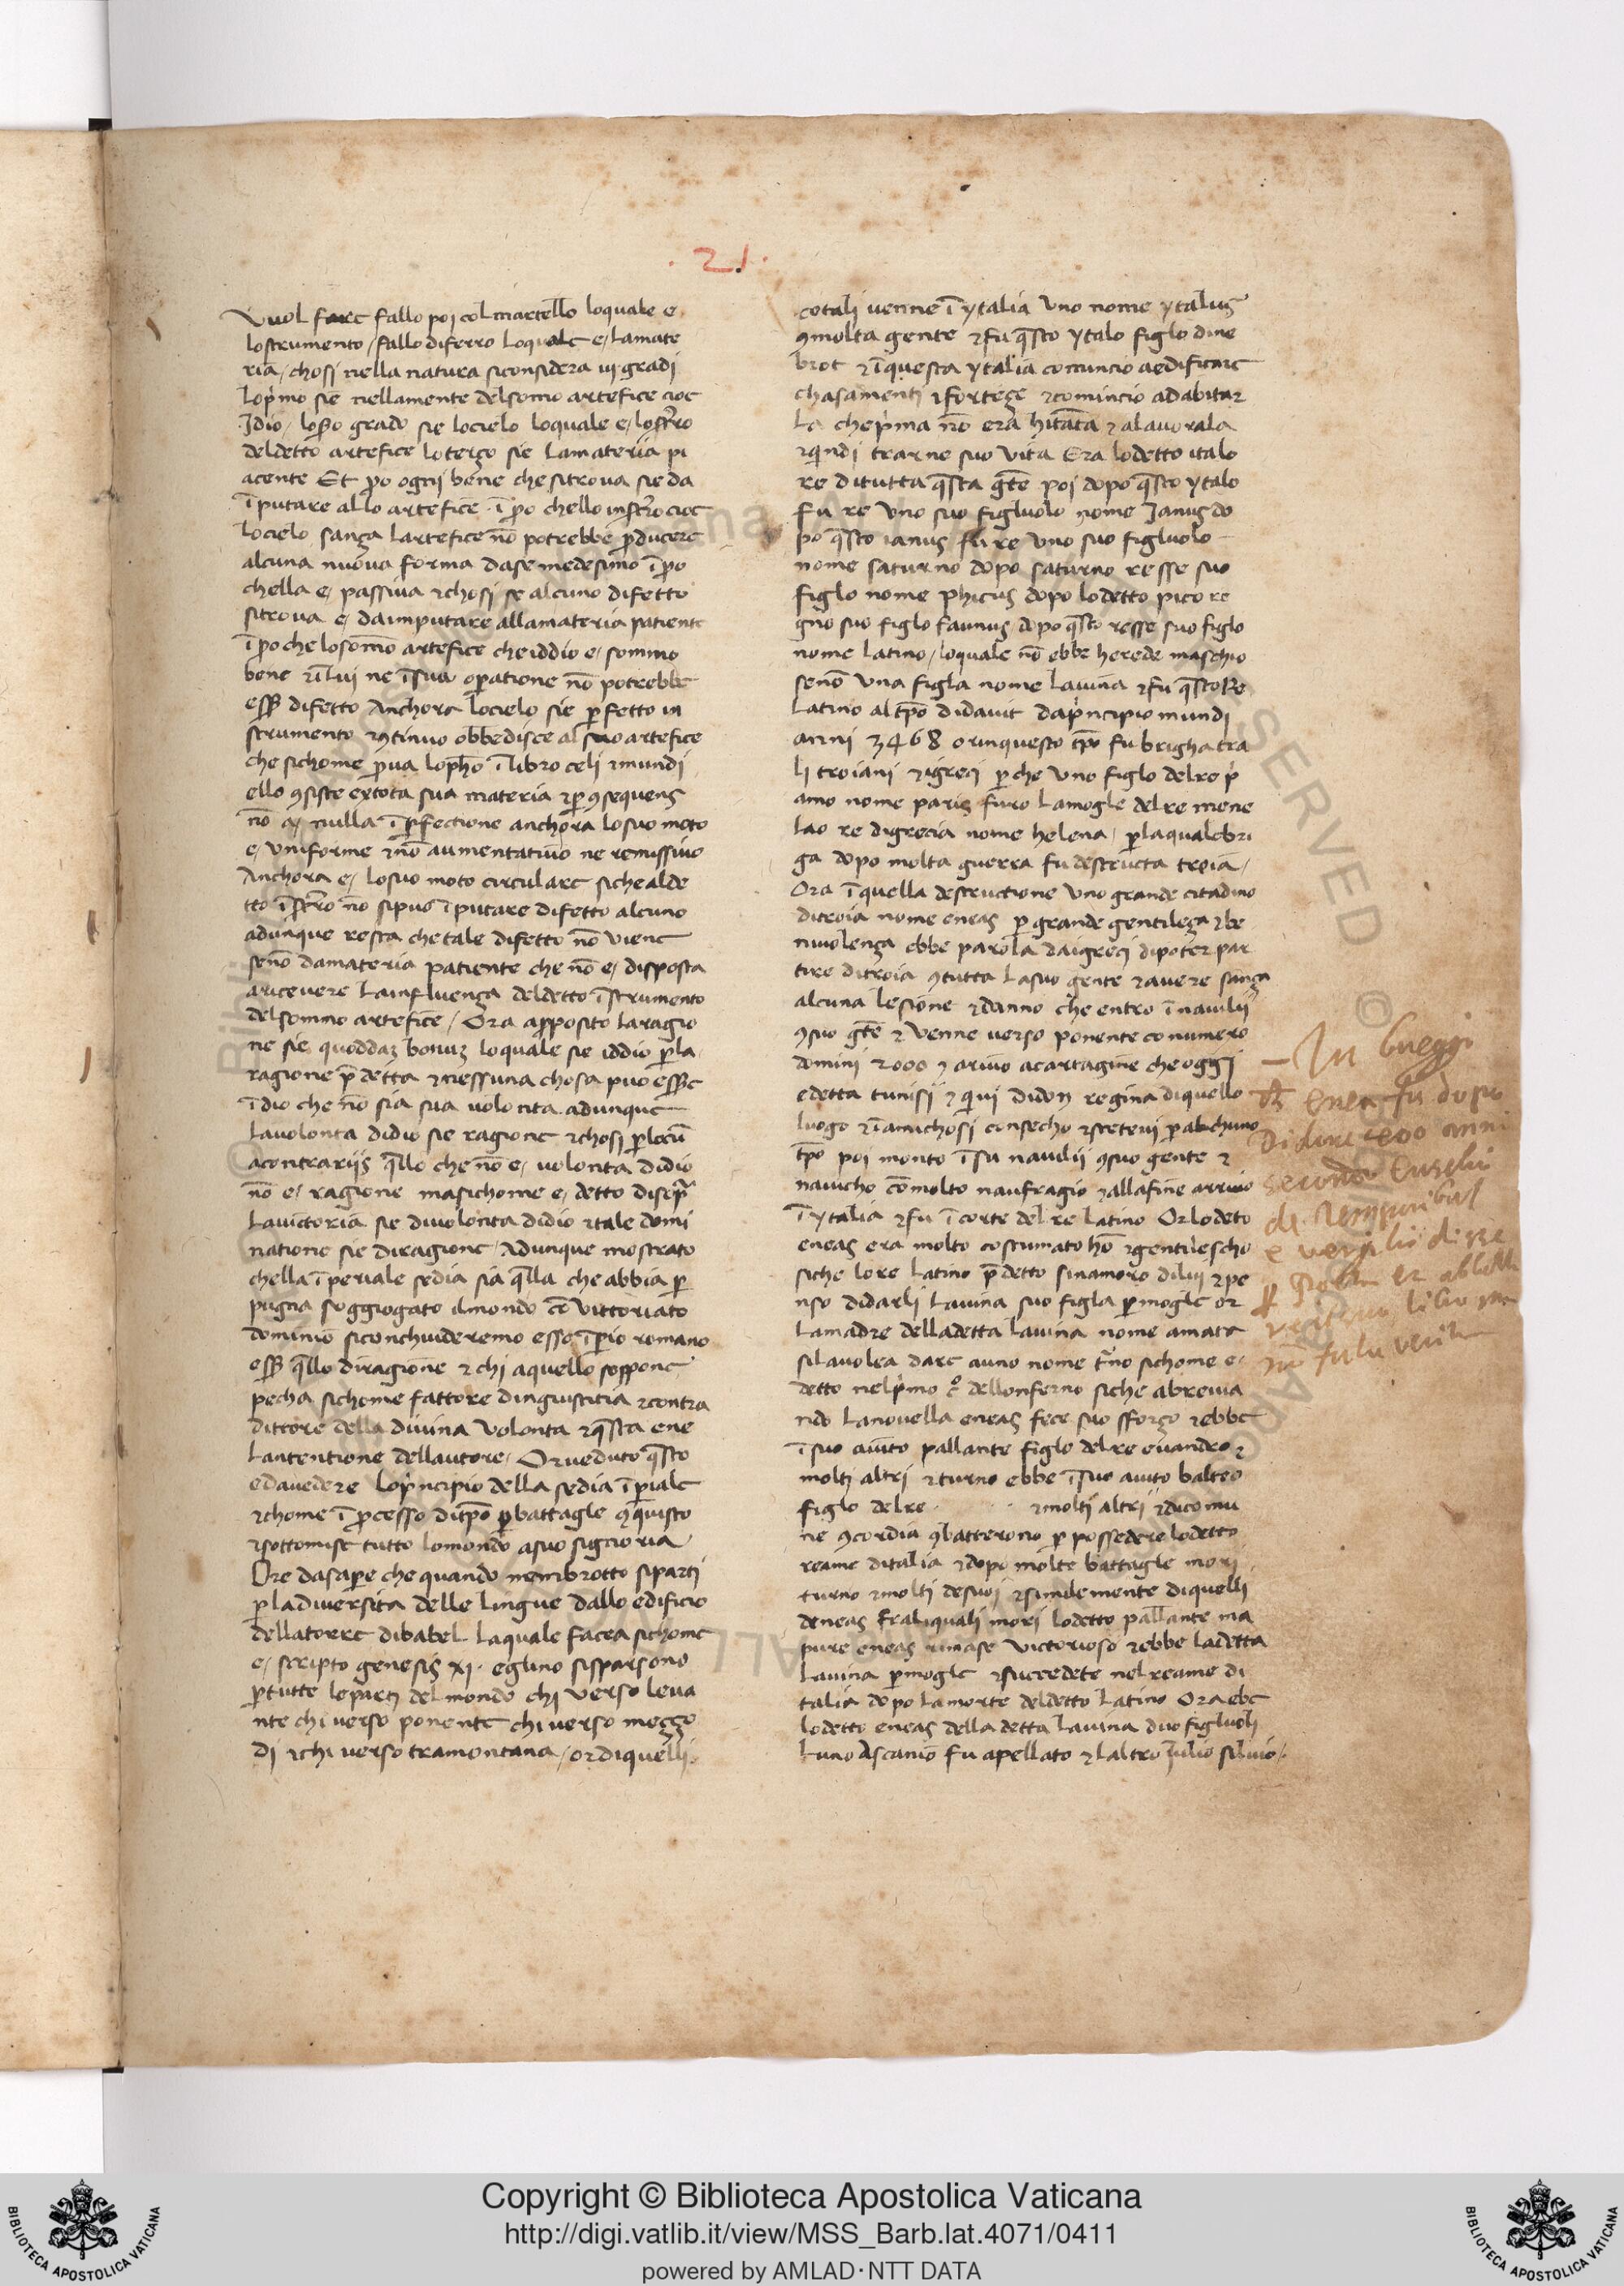 . 21 .
Vuol farc fallo poi col martello loquale e
lostrumento / fallo diferro loqualc e / lamate
ria / chosi nella natura siconsidera iij gradi
lop̍mo sie nellamente delsomo artefice cioe
Idio / grado sie locielo loquale e /
deldetto artefice loterço sie lamateria pi
acente Et po ogni bene chesitrova sie da
ĩputare allo artefice ĩpo chello cioe
locielo sança lartefice nõ potrebbe p̱ducere
alcuna nuova forma dase medesimo ĩpo
chella e / passiva ⁊chosi se alcuno difetto
sitrova e / daimputare allamateria patiente
ĩpoche losõmo artefice cheiddio e / sommo
bene ⁊ĩlui ne ĩsua op̱atione nõ potrebbe
difetto Anchora locielo sie p̱fetto in
strumento ⁊ꝯtinuo obbedisce al suo artefice
che sichome ĩlibro celi ⁊mundi
ello ꝯsiste extota sua materia ⁊p̱ ꝯsequens
nõ a / nulla ĩp̱fectione anchora losuo moto
e / Vniforme ⁊nõ aumentativo ne remissivo
Anchora e / losuo moto circularc siche alde
tto nõ sipuo ĩputare difetto alcuno
adunque resta chetale difetto nõ viene
senõ damateria patiente che nõ e / disposta
aricevere lainfluença deldetto ĩstrumento
delsommo artefice / Ora apposito laragio
ne sie quoddaʒ bonuʒ loquale sie iddio p̱la
ragione p̄detta ⁊niessuna chosa puo
ĩdio che nõ sia sua volonta adunque
lavolonta didio sie ragione ⁊chosi p̱locũ
acontrariis q̃llo che nõ e / volonta didio
nõ e / ragione masichome e / detto
lavictoria sie divolonta didio ⁊tale domi
natione sie diragione / Adunque mostrato
chella ĩperiale sedia sia q̃lla che abbia p̱
pugna soggiogato ilmondo cõ vittoriato
dominio siconchiuderemo esso ĩp̱io romano
q̃llo diragione ⁊ chi aquello soppone
pecha sichome fattore dingiusticia ⁊contra
dittore della divina volonta ⁊q̃sta ene
lantentione dellautore / Orveduto q̃sto
edavedere lop̍ncipio della sedia ĩp̱iale
⁊chome ĩp̱cesso ditp̃o p̱battagle ꝯquisto
⁊sottomise tutto lomondo asuo signoria
Ore dasap̱e che quando nembrotto siparti
p̱ladiversita delle lingue dallo edificio
dellatorre dibabel laquale facea sichome
e / scripto genesis xj . eglino sisparsono
p̱tutte leparti delmondo chi verso leva
nte chi verso ponente chi verso meçço
di ⁊chi verso tramontana / ordiquelli
cotali venne ĩytalia Vno nome ytalus
ꝯmolta gente ⁊fu q̃sto ytalo figlo dine
brot ⁊ĩquesta ytalia comincio aedificare
chasamenti ⁊forteçe ⁊comincio adabitar
la chep̍ma nõ era hitata ⁊ alavorala
⁊quindi trarne suo vita Era lodetto italo
re ditutta q̃sta gẽte poi dopo q̃sto ytalo
fu re Vno suo figluolo nome Ianus do
po q̃sto ianus fu re Vno suo figluolo
nome saturno dopo saturno resse suo
figlo nome phicus dopo lodetto pico re
gno suo figlo faunus dopo q̃sto resse suo figlo
nome latino / loquale nõ ebbe herede maschio
senõ Vna figla nome lavina ⁊fu q̃sto Re
latino altp̃o didavit dap̍ncipio mundi
anni 3468 orinquesto tp̃o fu brigha tra
li troiani ⁊igreci p̱che Vno figlo delre p̍
amo nome paris furo lamogle delre mene
lao re digrecia nome helena / p̱laqualebri
ga dopo molta guerra fu destructa troia /
Ora ĩquella destructione Vno grande citadino
ditroia nome eneas p̱ grande gentileça ⁊be
nivolença ebbe parola daigreci dipoter par
tire ditroia ꝯtutta lasuo gente ⁊avere sança
alcuna lesione ⁊danno che entro ĩnavilii
ꝯsuo gẽte ⁊ venne verso ponente conumero
domini 2000 ⁊ arivo acartagine cheoggi
edetta tunisi ⁊ quivi didon regina diquello
luogo ⁊ĩamichosi consecho ⁊stetevi p̱alchuno
tp̃o poi monto ĩsu navilii ꝯsuo gente ⁊
navicho cõmolto naufragio ⁊allafine arrivo
ĩytalia ⁊fu ĩcorte delre latino Orlodeto
eneas era molto costumato hõ ⁊gentilescho
siche lore latino p̄detto sinamoro dilui ⁊pe
nso didarli lavina suo figla p̱mogle or
lamadre delladetta lavina nome amata
silavolea dare auno nome sichome e /
detto nelp̍mo dellonferno siche abrevia
ndo lanovella eneas fece suo sforço ⁊ebbe
ĩsuo aiuto pallante figlo delre evandro ⁊
molti altri ⁊turno ebbe ĩsuo aiuto balteo
figlo delre . . ⁊molti altri ⁊dicomu
ne ꝯcordia ꝯbatterono p̱ possedere lodetto
reame ditalia ⁊dopo molte battagle mori
turno ⁊molti desuoi ⁊similemente diquelli
deneas fraliquali mori lodetto pallante ma
pure eneas rimase victorioso ⁊ebbe ladetta
lavina p̱mogle ⁊succedete nelreame di
talia dopo lamorte deldetto latino Ora ebe
lodetto eneas della detta lavina duo figluoli
luno Ascanio fu apellato ⁊ laltro Iulio silvio /.
enea fu dopo
anni
secondo Eusebii
de temporibus
Copyright © Biblioteca Apostolica Vaticana
http://digi.vatlib.it/view/MSS_Barb.lat.4071/0411
powered by AMLAD·NTT DATA
BIBLIOTECA APOSTOLICA VATICANA
BIBLIOTECA APOSTOLICA VATICANA